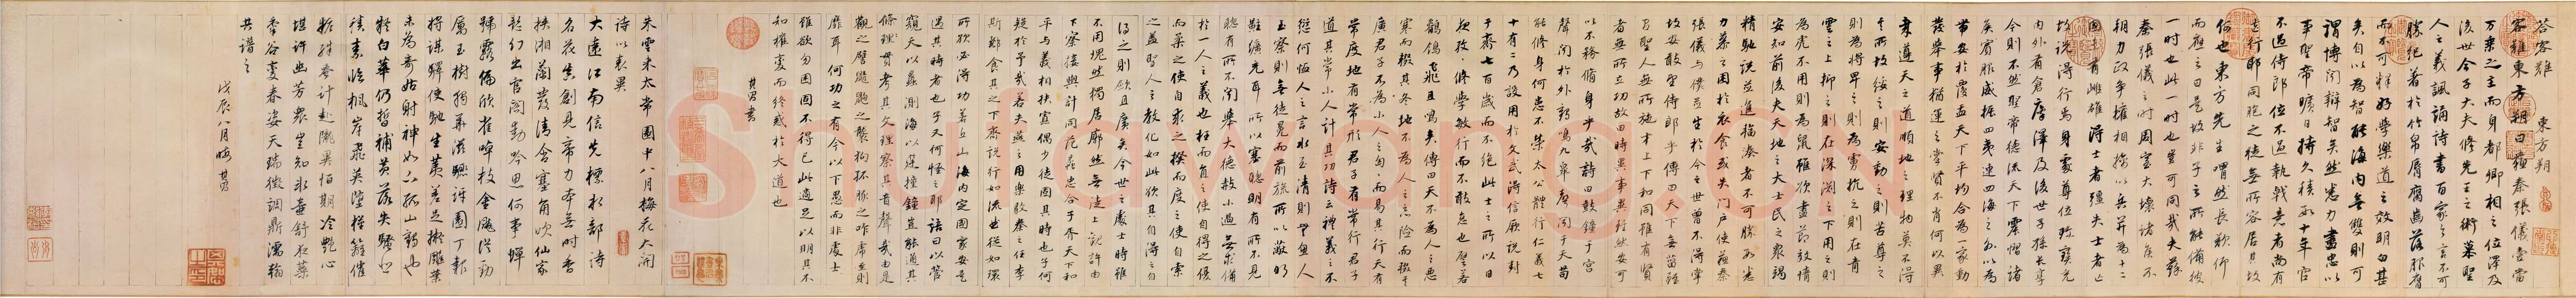 答客難　東方朔
客難東方朔曰蘇秦張儀壹當
萬乘之主而身都卿相之位澤及
後世今子大夫修先王之術慕聖
人之義諷誦詩書百家之言不可
勝紀著於竹帛唇腐齒落服膺
而不可釋好學樂道之效明白甚
矣自以為智能海內無雙則可
謂博聞辯智矣然悉力盡忠以
事聖帝曠日持久積數十年官
不過侍郎位不過執戟意者尚有
遺行耶同胞之徒無所容居其故
何也東方先生喟然長歎仰
而應之曰是故非子之所能備彼
一時也此一時也豈可同哉夫蘇
秦張儀之時周室大壞諸侯不
朝力政爭權相擒以兵并為十二
國未有雌雄得士者彊失士者亡
故說得行焉身處尊位珍寶充
內外有倉廩澤及後世子孫長享
今則不然聖帝德流天下震慴諸
侯賓服威振四夷連四海之外以為
帶安於覆盂天下平均合為一家動
發舉事猶運之掌賢不肖何以異
哉遵天之道順地之理物莫不得
其所故綏之則安動之則苦尊之
則為將卑之則為虜抗之則在青
雲之上抑之則在深淵之下用之則
為虎不用則為鼠雖欲盡節效情
安知前後夫天地之大士民之眾竭
精馳說並進輻湊者不可勝數悉
力慕之困於衣食或失門戶使蘇秦
張儀與僕並生於今之世曾不得掌
故安敢望侍郎乎傳曰天下無菑雖
有聖人無所施才上下和同雖有賢
者無所立功故曰時異事異雖然安可
以不務修身乎哉詩曰鼓鐘于宮
聲聞於外鶴鳴九皋聲聞于天苟
能修身何患不榮太公體行仁義七
十有二乃設用於文武得信厥說封
于齊七百歲而不絕此士之所以日
夜孜孜修學敏行而不敢怠也譬若
鶺鴒飛且鳴矣傳曰天不為人之惡
寒而輟其冬地不為人之惡險而輟其
廣君子不為小人之匈匈而易其行天有
常度地有常形君子有常行君子
道其常小人計其功詩云禮義之不
愆何恤人之言水至清則無魚人
至察則無徒冕而前旒所以蔽明
黈纊充耳所以塞聰明有所不見
聰有所不聞舉大德赦小過無求備
於一人之義也枉而直之使自得之優
而柔之使自求之揆而度之使自索
之蓋聖人之教化如此欲其自得之自
得之則敏且廣矣今世之處士時雖
不用塊然獨居廓然無徒上觀許由
下察接輿計同范蠡忠合子胥天下和
平與義相扶寡偶少徒固其時也子何
疑於予哉若夫燕之用樂毅秦之任李
斯酈食其之下齊說行如流曲從如環
所欲必得功若丘山海內定國家安是
遇其時者也子又何怪之耶語曰以管
窺天以蠡測海以筳撞鐘豈能通其
條理貫考其文理發其音聲哉由是
觀之譬猶鼱鼩之襲狗孤豚之咋虎至則
靡耳何功之有今以下愚而非處士
雖欲勿困固不得已此適足以明其不
知權變而終惑於大道也
其昌書
朱雲來太常園中八月梅花大開
詩以表異
大遠江南信先標水部詩
名花生創見帝力本無時香
挾湘蘭發清含塞角吹仙家
韻幻出官閣動吟思何事蟬
號露偏欣雀啅枝金颸從勁
屬玉樹獨華滋聽詳圖丁報
將謀驛使馳生蓂差足擬雕葉
未為奇姑射神如 孤山鶴也
疑白華仍皙補黃落失騷
積素臨楓岸飛英墮 籬催
赴隴異怕期冷艷心
堪許幽芳眾 知冰壺舒 藥
黍谷變春姿天瑞徵調鼎濡翰
共譜之
戊辰八月晦 其昌